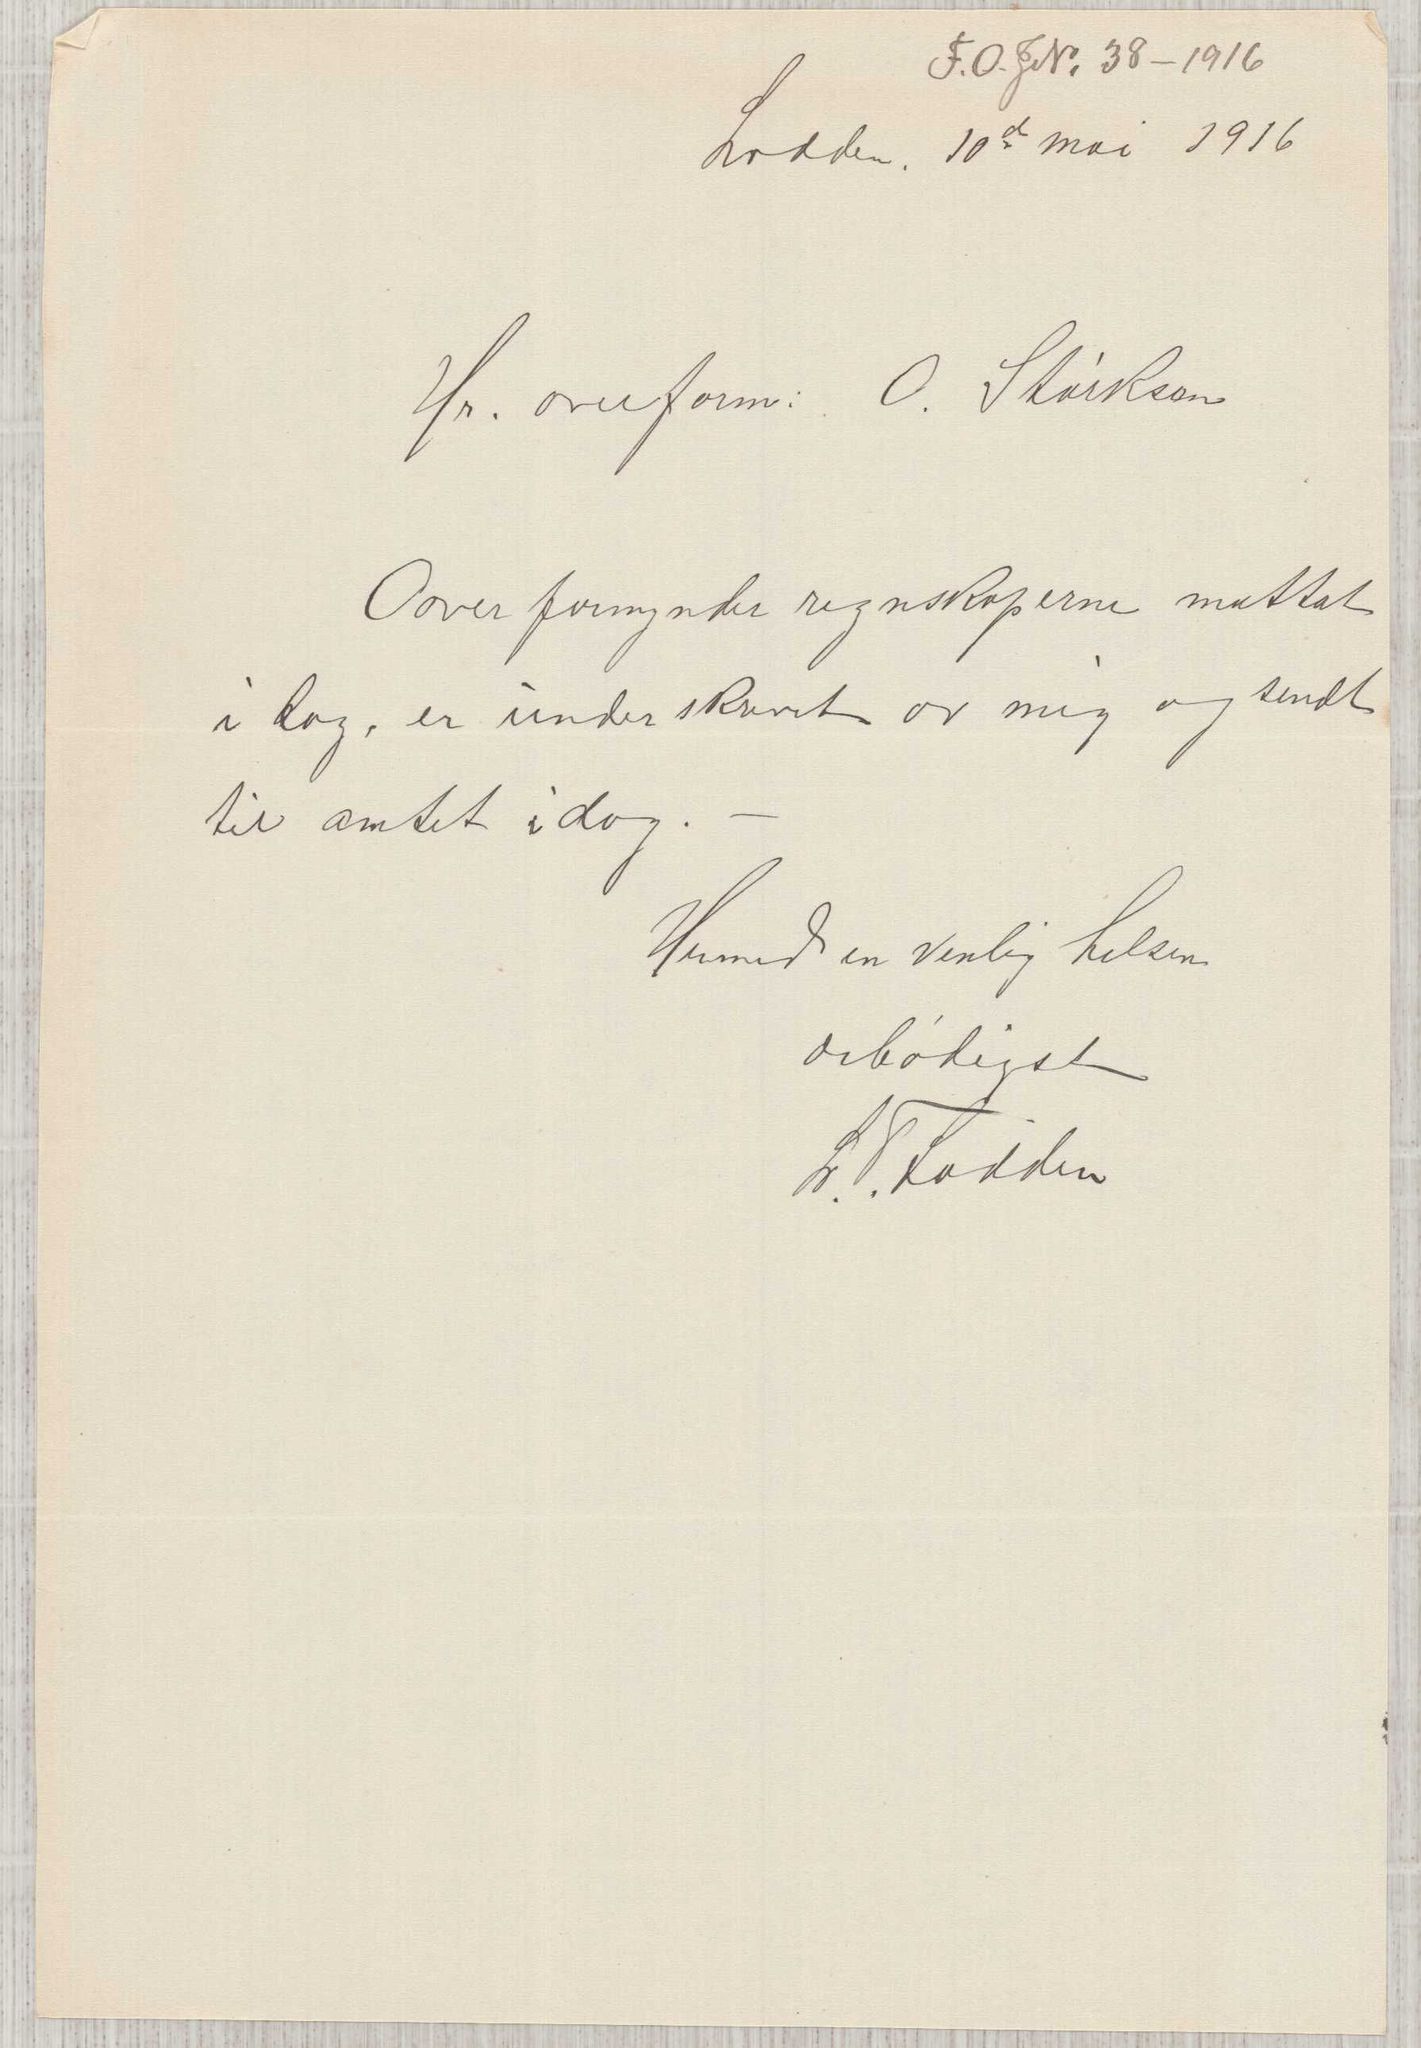 F.O.J.No. 38 – 1916
Lodden. 10d mai 1916
Hr. overform: O. Störksen
Overformynder regnskaperne mottat
i dag, er underskrevet av mig og sendt
til amtet idag. –
Hermed en venlig helsen
ærbödigst
L. T. Lodden